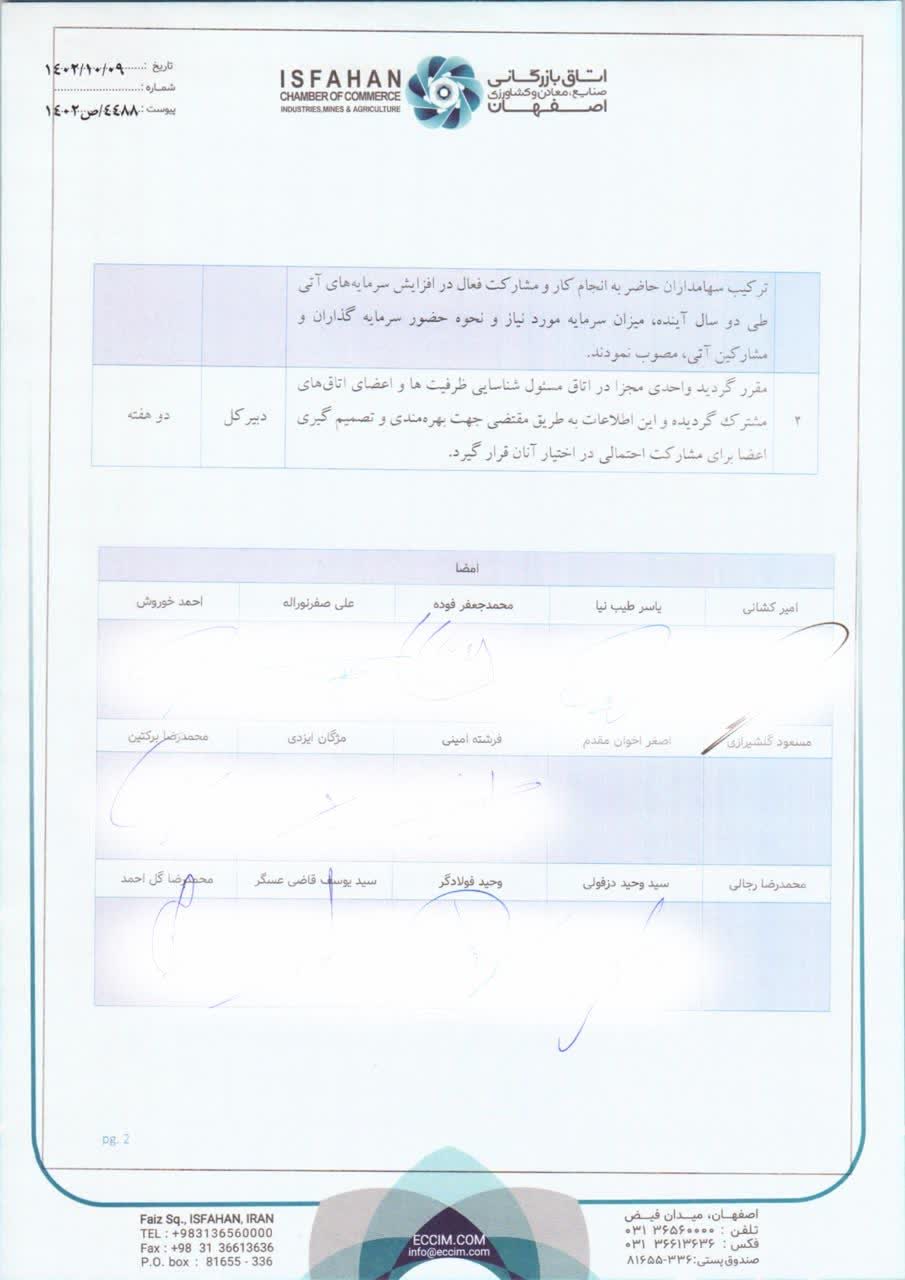 تاریخ :......۱٤۰۲/۱۰/۰۹
شماره :..........................
پیوست : ٤٤٨٨/ص/۱٤۰۲
ISFAHAN
CHAMBER OF COMMERCE
INDUSTRIES, MINES & AGRICULTURE
اتاق بازرگانی
صنایع، معادن و کشاورزی
اصفهان
ترکیب سهامداران حاضر به انجام کار و مشارکت فعال در افزایش سرمایه‌های آتی
طی دو سال آینده، میزان سرمایه مورد نیاز و نحوه حضور سرمایه گذاران و
مشارکین آتی، مصوب نمودند.
مقرر گردید واحدی مجزا در اتاق مسئول شناسایی ظرفیت ها و اعضای اتاق‌های
۲ مشترك گردیده و این اطلاعات به طریق مقتضی جهت بهره‌مندی و تصمیم گیری دبیر کل دو هفته
اعضا برای مشارکت احتمالی در اختیار آنان قرار گیرد.
امضا
امیر کشانی یاسر طیب نیا محمدجعفر فوده علی صفرنوراله احمد خوروش
مسعود گلشیرازی اصغر اخوان مقدم فرشته امینی مژگان ایزدی محمدرضا برکتین
محمدرضا رجالی سید وحید دزفولی وحید فولادگر سید یوسف قاضی عسگر محمدرضا گل احمد
pg. 2
Faiz Sq., ISFAHAN, IRAN
TEL : +983136560000
Fax : +98 31 36613636
P.O. box : 81655 - 336
ECCIM.COM
info@eccim.com
اصفهـان، میـدان فیـض
تلفن : ۳۶۵۶۰۰۰۰ ۰۳۱
فکس : ۳۶۶۱۳۶۳۶ ۰۳۱
صندوق پستی: ۳۳۶-۸۱۶۵۵